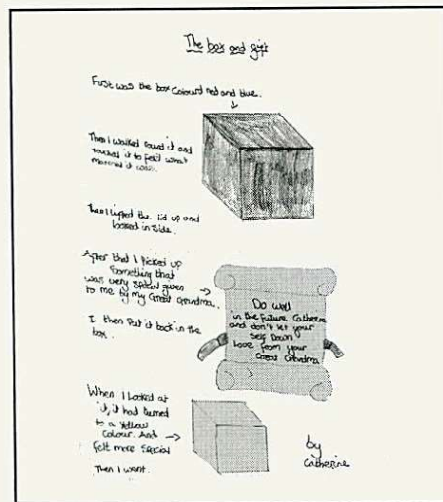 The box and gift
First was the box Coloured red and blue.
Then I walked round it and
touched it to feel what
material it was.
Then I lifted the lid up and
looked in side.
After that I picked up
Something that
was very special given
to me by my Great Grandma.
I then Put it back in the
box.
Do well
in the future Catherine
and don't let your
Self Down
Love from your
Great Grandma
When I Looked at
it, it had turned
to a Yellow
Colour. And
felt more Special
Then I went.
by
Catherine